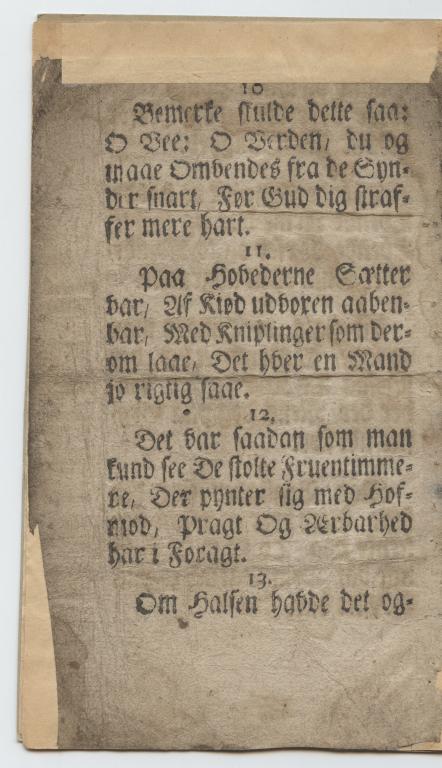 10
Bemerke skulde dette saa:
O Vee; O Verden, du og
maae Ombendes fra de Syn-
der snart, Før Gud dig straf-
fer mere hart.
11.
Paa Hovederne Sætter
var, Af Kiød udvoxen aaben-
bar, Med Kniplinger som der-
om laae, Det hver en Mand
jo rigtig saae.
12.
Det var saadan som man
kund see De stolte Fruentimme-
re, Der pynter sig med Hof-
mod, Pragt Og Ærbarhed
har i Foragt.
13.
Om Halsen havde det og-